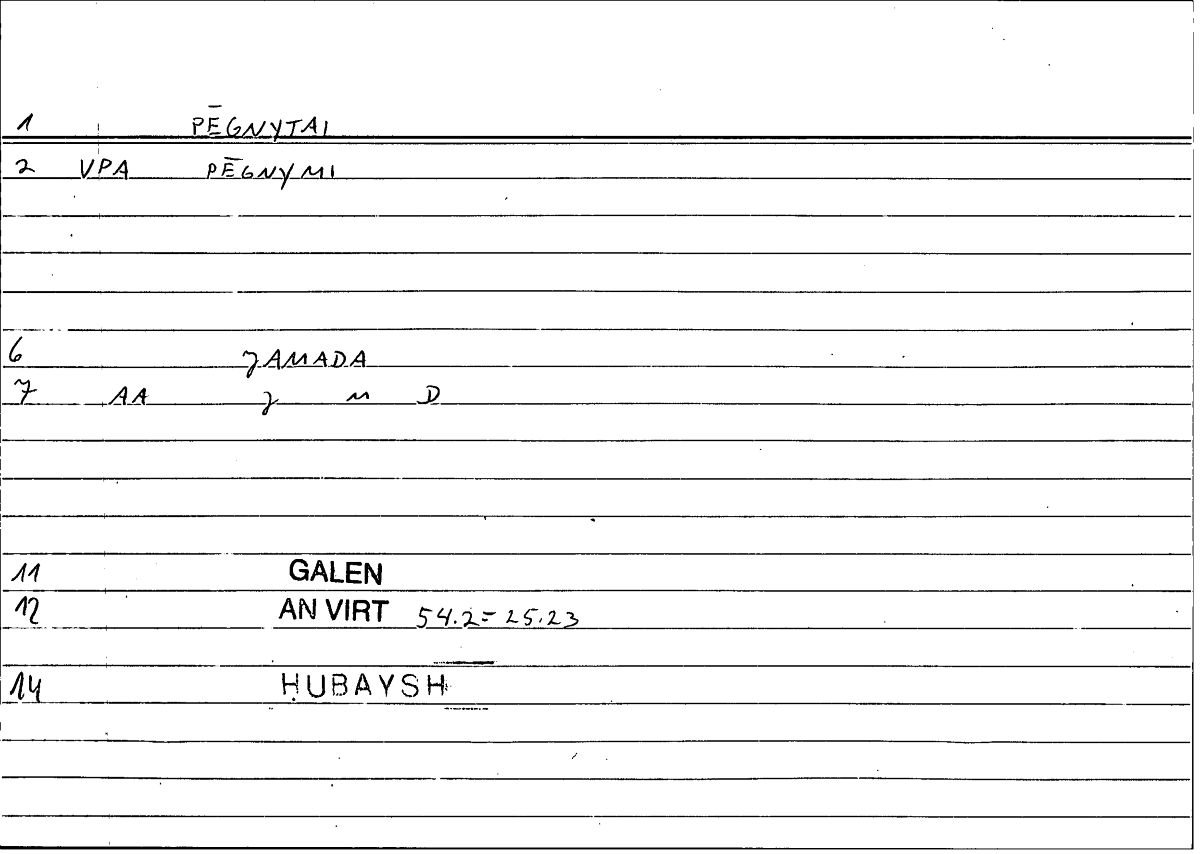 1 PĒGNYTAI
2 VPA PĒGNYMI
6 JAMADA
7 AA J M D
11 GALEN
12 AN VIRT 54.2=25.23
14 ḤUBAYSH